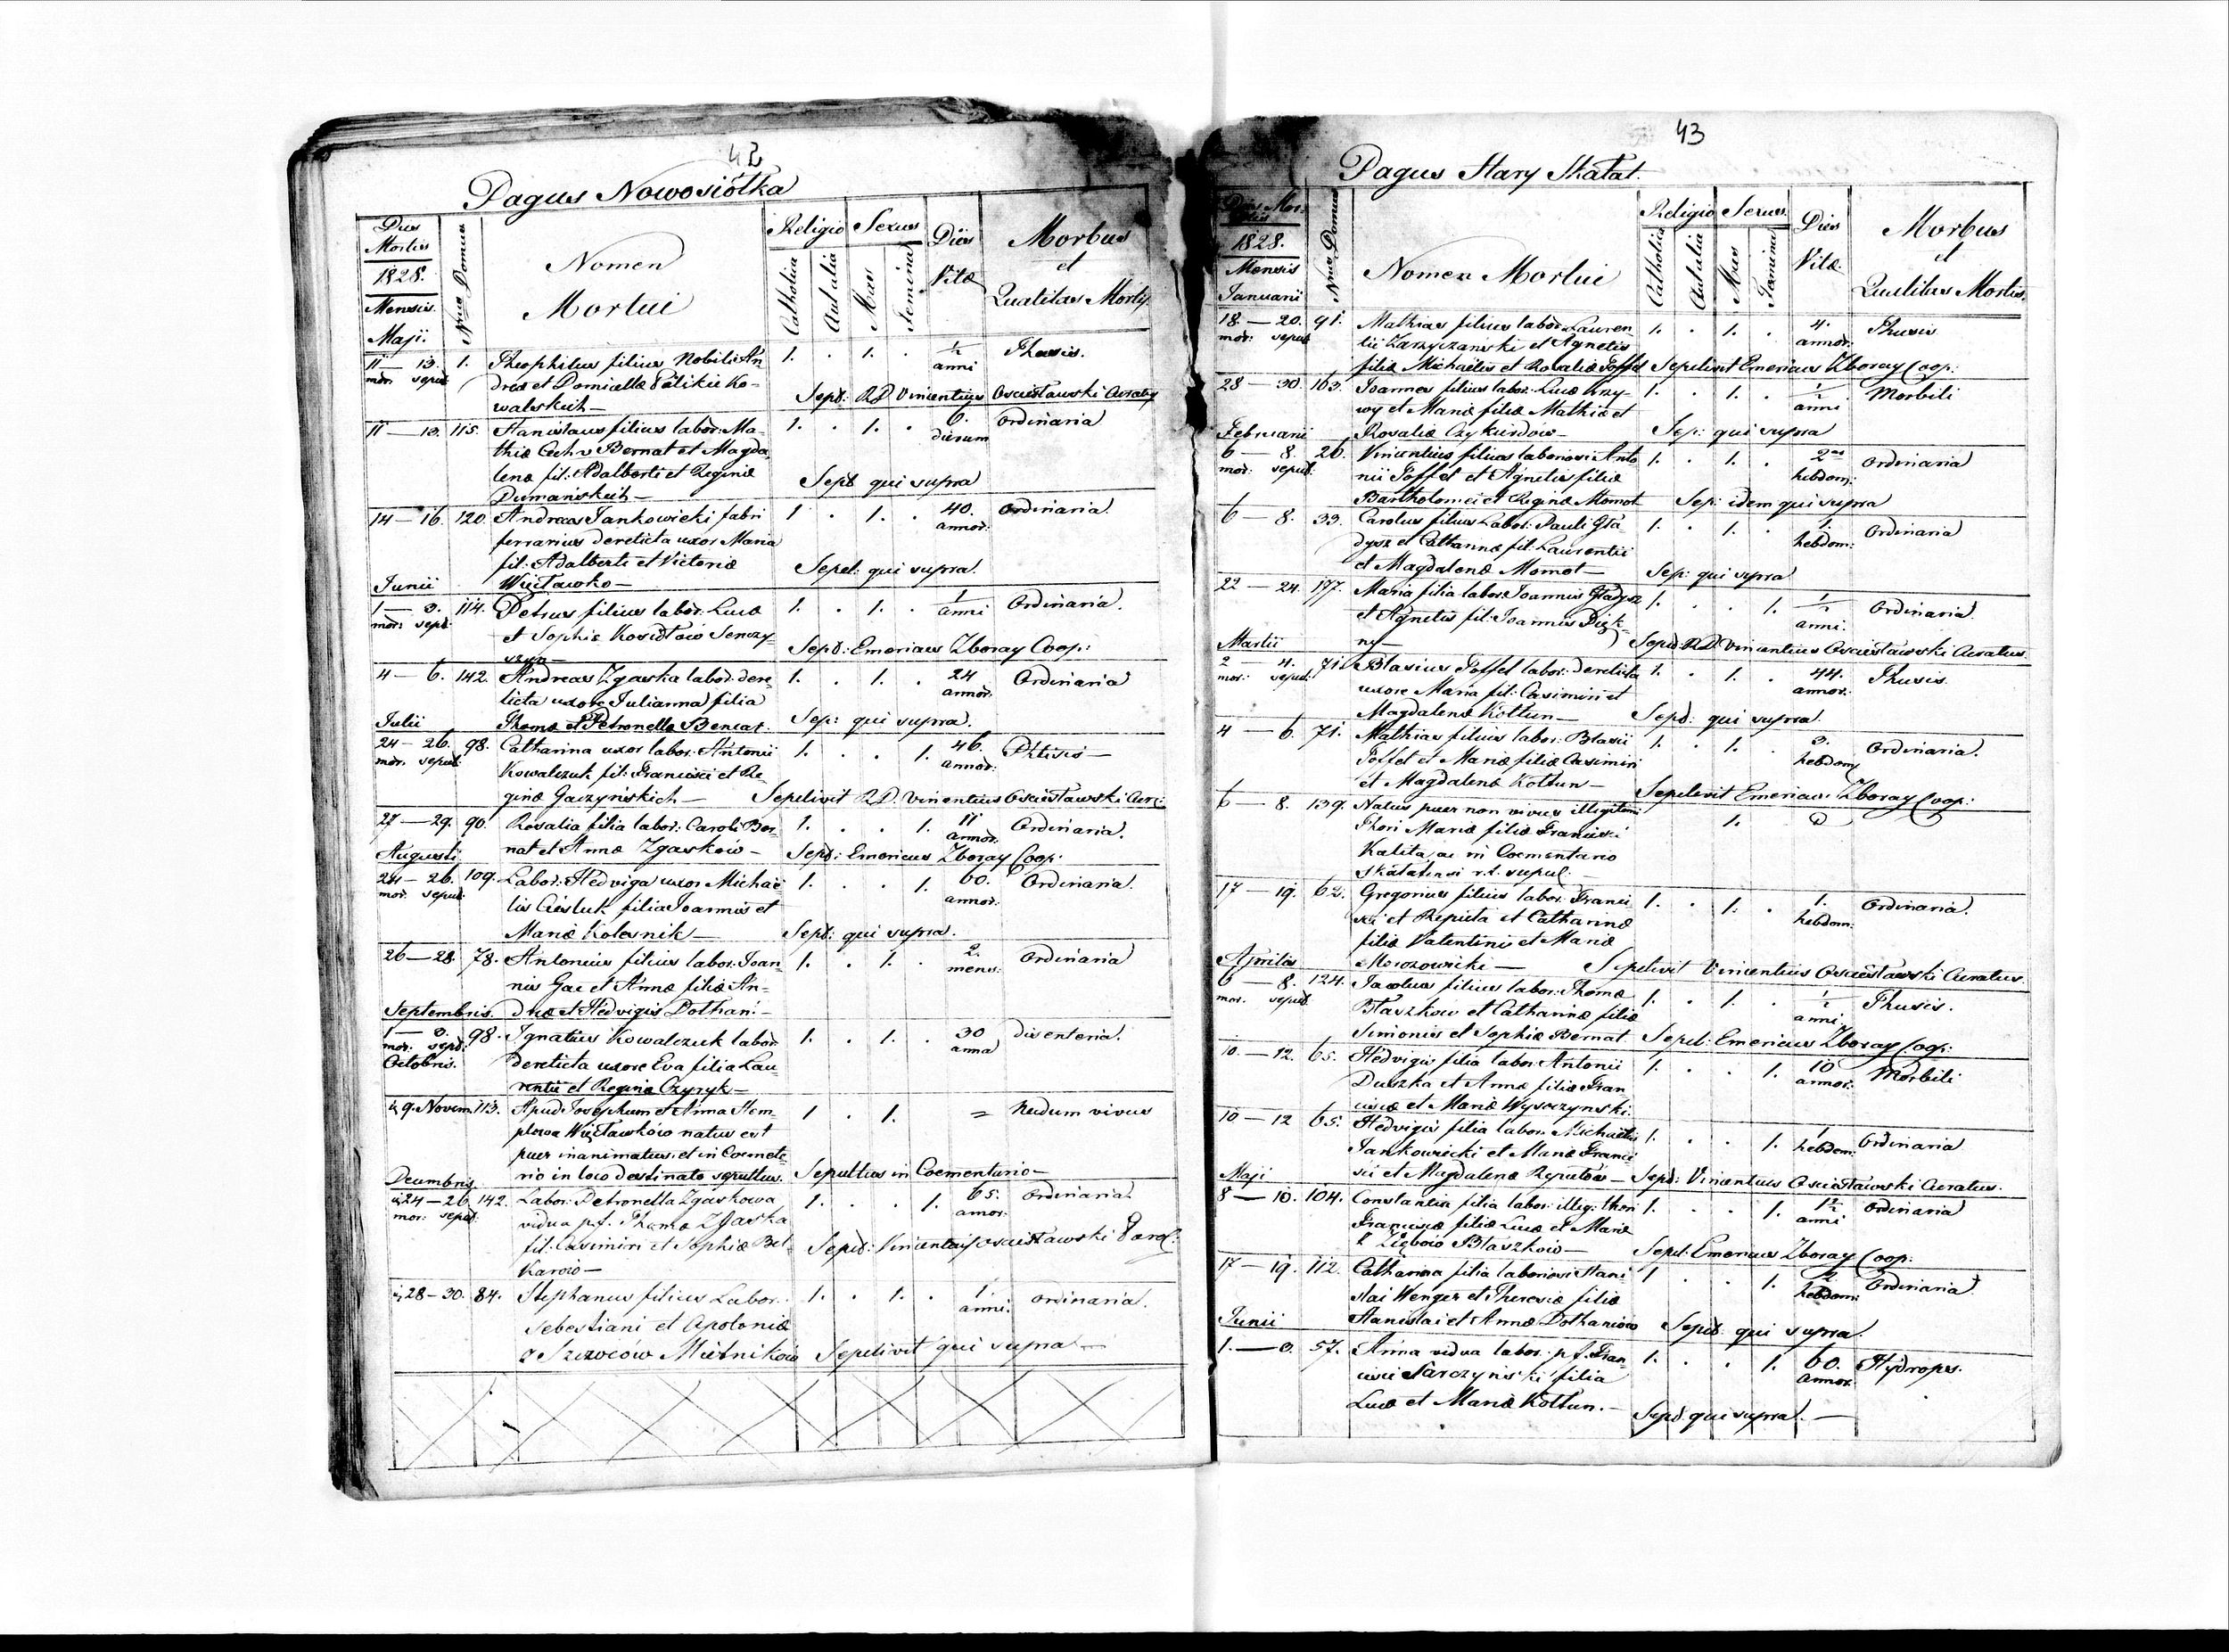 42
Pagus Nowosiółka
Dies Mortis 1828. Mensis Maji. Nrus Domus Nomen Mortui Religio Catholica Aut alia Sexus Mas Femina Dies Vitæ Morbus et Qualitas Mortis
11 — 13. 1. Theophilus filius Nobilis An- 1. . 1. . ½ Thusis.
mor. sepul. dreæ et Domicellæ Ko- anni
walskich — Sepel: RD Vincentius Ościsławski Curatus
11 — 13. 115. Stanislaus filius labor: Ma- 1. . 1. . 6. Ordinaria
thiæ Bernat et Magda dierum
lenæ fil: Adalberti et Reginæ Sepel qui supra
Dumańskich —
14 — 16. 120. Andreas Jankowicki fabri 1 . 1. . 40. Ordinaria.
ferrarius derelicta uxor Maria annor.
fil: Adalberti et Victoriæ Sepel: qui supra.
Junii Więcławsko —
1 — 3. 114. Petrus filius labor: Lucæ 1. . 1. . ½ Ordinaria.
mor: sepel: et Sophiæ anni
Sepel: Emericus Zboray Coop:
4 — 6. 142. Andreas Zgarska labor. dere- 1. . 1. . 24 Ordinaria
licta uxore Julianna filia annor.
Julii Thomæ et Petronellæ Bernat. Sep: qui supra.
24 — 26. 98. Catharina uxor labor: Antonii 1. . . 1. 46. Phtisis —
mor. sepul: Kowalczuk fil: Francisci et Re- annor:
ginæ Gaczyńskich — Sepelivit RD. Vincentius Ościsławski Cur:
27 — 29. 90. Rosalia filia labor: Caroli Ber- 1. . . 1. 11 Ordinaria.
nat et Annæ Zgarsków — annor.
Augusti Sepel: Emericus Zboray Coop:
24 — 26. 109. Labor: Hedviga uxor Michaë 1. . . 1. 60. Ordinaria.
mor. sepul: lis Cieśluk filia Joannis et annor.
Mariæ Kolesnik — Sepel: qui supra.
26 — 28. 78. Antonius filius labor: Joan- 1. . 1. . 2. Ordinaria
nis Gac et Annæ filiæ An- mens:
Septembris. dreæ et Hedvigis Dothań. —
1 — 3. 98. Ignatius Kowalczuk labor 1. . 1. . 30 disenteria.
mor: sepel: derelicta uxore Eva filia Lau- anno
Octobris. rentii et Reginæ Czyryk —
9. Novem. 113. Apud Josephum et Anna Stem- 1 . 1. = Nudum vivus
plowa Więcławsków natus est
puer inanimatus, et in Coemete-
rio in loco destinato sepultus. Sepultus in Coementario —
Decembris
24 — 26. 142. Labor: Petronella Zgarskowa 1. . . 1. 65. Ordinaria.
mor: sepul: vidua p.f. Thomæ Zgarska annor.
fil: Casimiri et Sophiæ Bel- Sepel: Vincentius Ościsławski Paroc:
karow —
28 — 30. 84. Stephanus filius Labor. 1. . 1. . 1. ordinaria.
Sebestiani et Apoloniæ anni.
z Szewców Mielników Sepelivit qui supra —
43
Pagus Stary Skałat.
Dies Mortis 1828. Mensis Januarii Nrus Domus Nomen Mortui Religio Catholica Aut alia Sexus Mas Femina Dies Vitæ Morbus et Qualitas Mortis.
18. — 20. 91. Mathias filius labor: Lauren- 1. . 1. . 4. Thusis
mor: sepul: tii Zarzyczanski et Agnetis annor.
filiæ Michaëlis et Rosaliæ Joffel Sepelivit Emericus Zboray Coop:
28 — 30. 163. Joannes filius labor: Lucæ Krzy- 1. . 1. . ½ Morbili
wy et Mariæ filiæ Mathiæ et anni
Februarii Rosaliæ Czykurdów — Sep: qui supra
6 — 8. 26. Vincentius filius laboriosi Anto 1. . 1. . 2as Ordinaria
mor: sepul: nii Joffel et Agnetis filiæ hebdom:
Bartholomei et Reginæ Momot Sep: idem qui supra
6 — 8. 33. Carolus filius Labor: Pauli Gła- 1. . 1. . 1. Ordinaria
dysz et Catharinæ fil: Laurentii hebdom:
et Magdalenæ Momot — Sep: qui supra
22 — 24. 177. Maria filia labor: Joannis Gładysz 1. . . 1. ½ Ordinaria
et Agnetis fil: Joannis Pięk- anni.
Martii ny — Sepel: RD Vincentius Ościsławski Curatus.
2 — 4. 71. Blasius Joffel labor: derelicta 1. . 1. . 44. Thusis.
mor: sepul: uxore Maria fil: Casimiri et annor.
Magdalenæ Kołtun — Sepel: qui supra.
4 — 6. 71. Mathias filius labor: Blasii 1. . 1. . 3. Ordinaria.
Joffel et Mariæ filiæ Casimiri hebdom:
et Magdalenæ Kołtun — Sepelivit Emericus Zboray Coop:
6 — 8. 139. Natus puer non vivus illegitimi 1.
Thori Mariæ filiæ Francisci
Kalita, ac in Coementario
Skałatensi r.l. sepul: —
17 — 19. 62. Gregorius filius labor: Franci 1. . 1. . 1. Ordinaria.
sci et Repicta et Catharinæ hebdom:
filiæ Valentini et Mariæ
Aprilis Morozowicki — Sepelivit Vincentius Ościsławski Curatus.
6 — 8. 124. Jacobus filius labor: Thomæ 1. . 1. . ½ Thusis.
mor. sepul: Błaszkow et Catharinæ filiæ anni
Simonis et Sophiæ Bernat. Sepel: Emericus Zboray Coop:
10. — 12. 65. Hedvigis filia labor: Antonii 1. . . 1. 10 Morbili
Duszka et Annæ filiæ Fran- annor.
cisci et Mariæ Wysoczynski.
10 — 12 65. Hedvigis filia labor: Michaëlis 1. . . 1. 1 Ordinaria
Jankowicki et Mariæ Franci- hebdom:
Maji sci et Magdalenæ Reputów — Sepel: Vincentius Ościsławski Curatus.
8 — 10. 104. Constantia filia labor: illeg: thori 1. . . 1. 1½ Ordinaria
Franciscæ filiæ Lucæ et Mariæ anni
z Ziębów Błaszków — Sepel: Emericus Zboray Coop:
17 — 19. 112. Catharina filia laboriosi Stani 1 . . 1. 2 Ordinaria
slai Wenger et Theresiæ filiæ hebdom:
Junii Stanislai et Annæ Dothaniow Sepel: qui supra.
1. — 3. 57. Anna vidua labor: p.f. Fran- 1. . . 1. 60. Hydrops.
cisci Sarczyński filia annor.
Lucæ et Mariæ Kołtun. — Sepel: qui supra. —